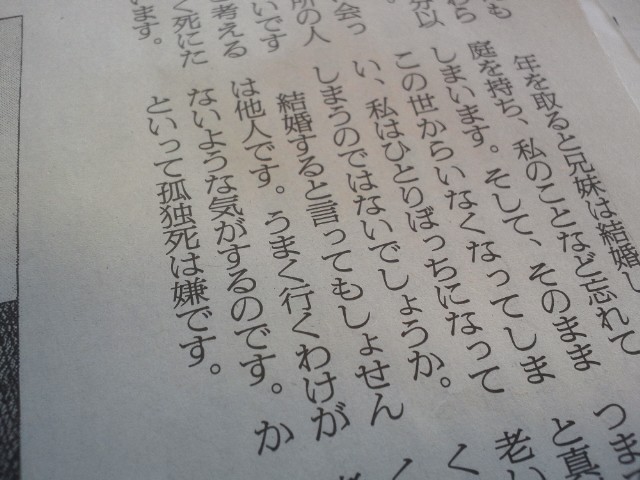 も
わら
分以
会っ
所の人
いです
考える
く死にた
います。
年を取ると兄妹は結婚し
庭を持ち、私のことなど忘れて
しまいます。そして、そのまま
この世からいなくなってしま
い、私はひとりぼっちになって
しまうのではないでしょうか。
結婚すると言ってもしょせん
は他人です。うまく行くわけが
ないような気がするのです。か
といって孤独死は嫌です。
つまっ
と真
老い
く
く